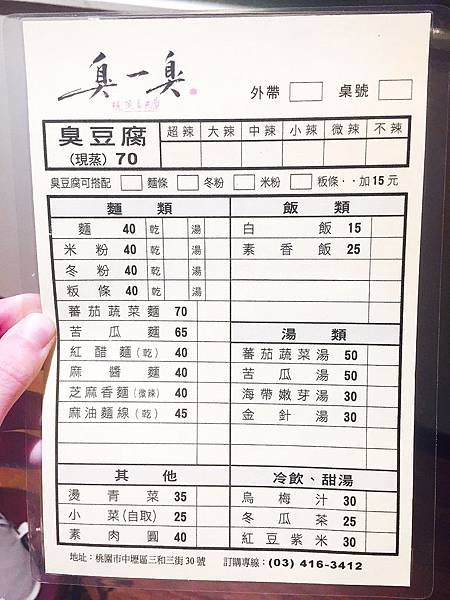 臭一臭
外帶 桌號
臭豆腐 (現蒸) 70
超辣 大辣 中辣 小辣 微辣 不辣
臭豆腐可搭配 麵條 冬粉 米粉 粄條‥加15元
麵類
麵 40 乾 湯
米粉 40 乾 湯
冬粉 40 乾 湯
粄條 40 乾 湯
蕃茄蔬菜麵 70
苦瓜麵 65
紅醋麵(乾) 40
麻醬麵 40
芝麻香麵(微辣) 40
麻油麵線(乾) 45
飯類
白飯 15
素香飯 25
湯類
蕃茄蔬菜湯 50
苦瓜湯 50
海帶嫩芽湯 30
金針湯 30
其他
燙青菜 35
小菜(自取) 25
素肉圓 40
冷飲、甜湯
烏梅汁 30
冬瓜茶 25
紅豆紫米 30
地址：桃園市中壢區三和三街30號 訂購專線：(03) 416-3412